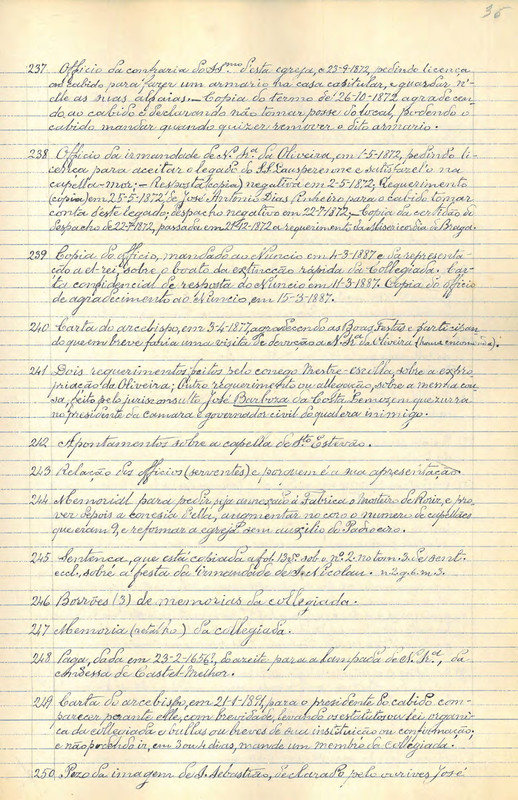 36
237 Officio da confraria do SS.mo d'esta egreja, a 23-9-1872, pedindo licença
ao cabido para fazer um armario na casa capitular, e guardar n'
elle as suas alfaias. - Copia do termo de 26-10-1872 agradecen
do ao cabido e declarando não tomar posse do local, podendo o
cabido mandar quando quizer remover o dito armario.
238 Officio da irmandade de N.ª Sr.ª da Oliveira, em 1-5-1872, pedindo li-
cença para aceitar o legado do SS. Lausperenne e satisfazel'o na
capella-mor; - Resposta (copia) negativa em 2-5-1872; Requerimento
(copia) em 25-5-1872, de José Antonio Dias Pinheiro para o cabido tomar
conta d'este legado; despacho negativo em 22-7-1872; - Copia da certidão do
despacho de 22-7-1872, passada em 21-12-1872 a requerim.to da Misericordia de Braga.
239 Copia do officio, mandado ao Nuncio em 4-3-1887 e da representa-
ção a el-rei, sobre o boato da extincção rápida da Collegiada. Car-
ta confidencial de resposta do Nuncio em 11-3-1887. Copia do officio
de agradecimento ao Nuncio, em 15-3-1887.
240 Carta do arcebispo, em 3-4-1877, agradecendo as Boas Festas e participan
do que em breve faria uma visita de devoção a N.ª Sr.ª da Oliveira
241 Dois requerimentos feitos pelo conego Mestre-escolla, sobre a expro
priação da Oliveira; Outro requerimento ou allegação, sobre a mesma cou
sa, feito pelo jurisconsulto José Barboza da Costa Lemos, em que zurra
no presidente da camara e governador civil do qual era inimigo.
242 Apontamentos sobre a capella de S.to Estevão.
243 Relação dos officios (serventes) e por quem é a sua apresentação.
244 Memorial para pedir, seja annexado á Fabrica o Mosteiro de Roriz, e pro
ver depois a conesia Pelli, augmentar no coro o numero de capellães
que eram 9, e reformar a egreja sem auxilio do Padroeiro.
245 Sentença, que está copiada a fol. 135 sob o n.º 2. no tom. 3. de sent.
eccl., sobre a festa da irmandade de S. Nicolau. n 2. g. 6. m 3.
246 Borrões (3) de memorias da collegiada.
247 Memoria (retalho) da collegiada.
248 Paga, dada em 23-2-1656, do azeite para a lampada de N.ª Sr.ª, da
condessa de Castel-Melhor.
249 Carta do arcebispo, em 21-1-1891, para o presidente do cabido com-
parecer perante elle, com brevidade, levando os estatutos ou lei organi
ca da collegiada e bullas ou breves de sua instituição ou confirmação;
e não podendo ir, em 3 ou 4 dias, mande um membro da collegiada.
250 Pezo da imagem de S. Sebastião, declarado pelo ourives José